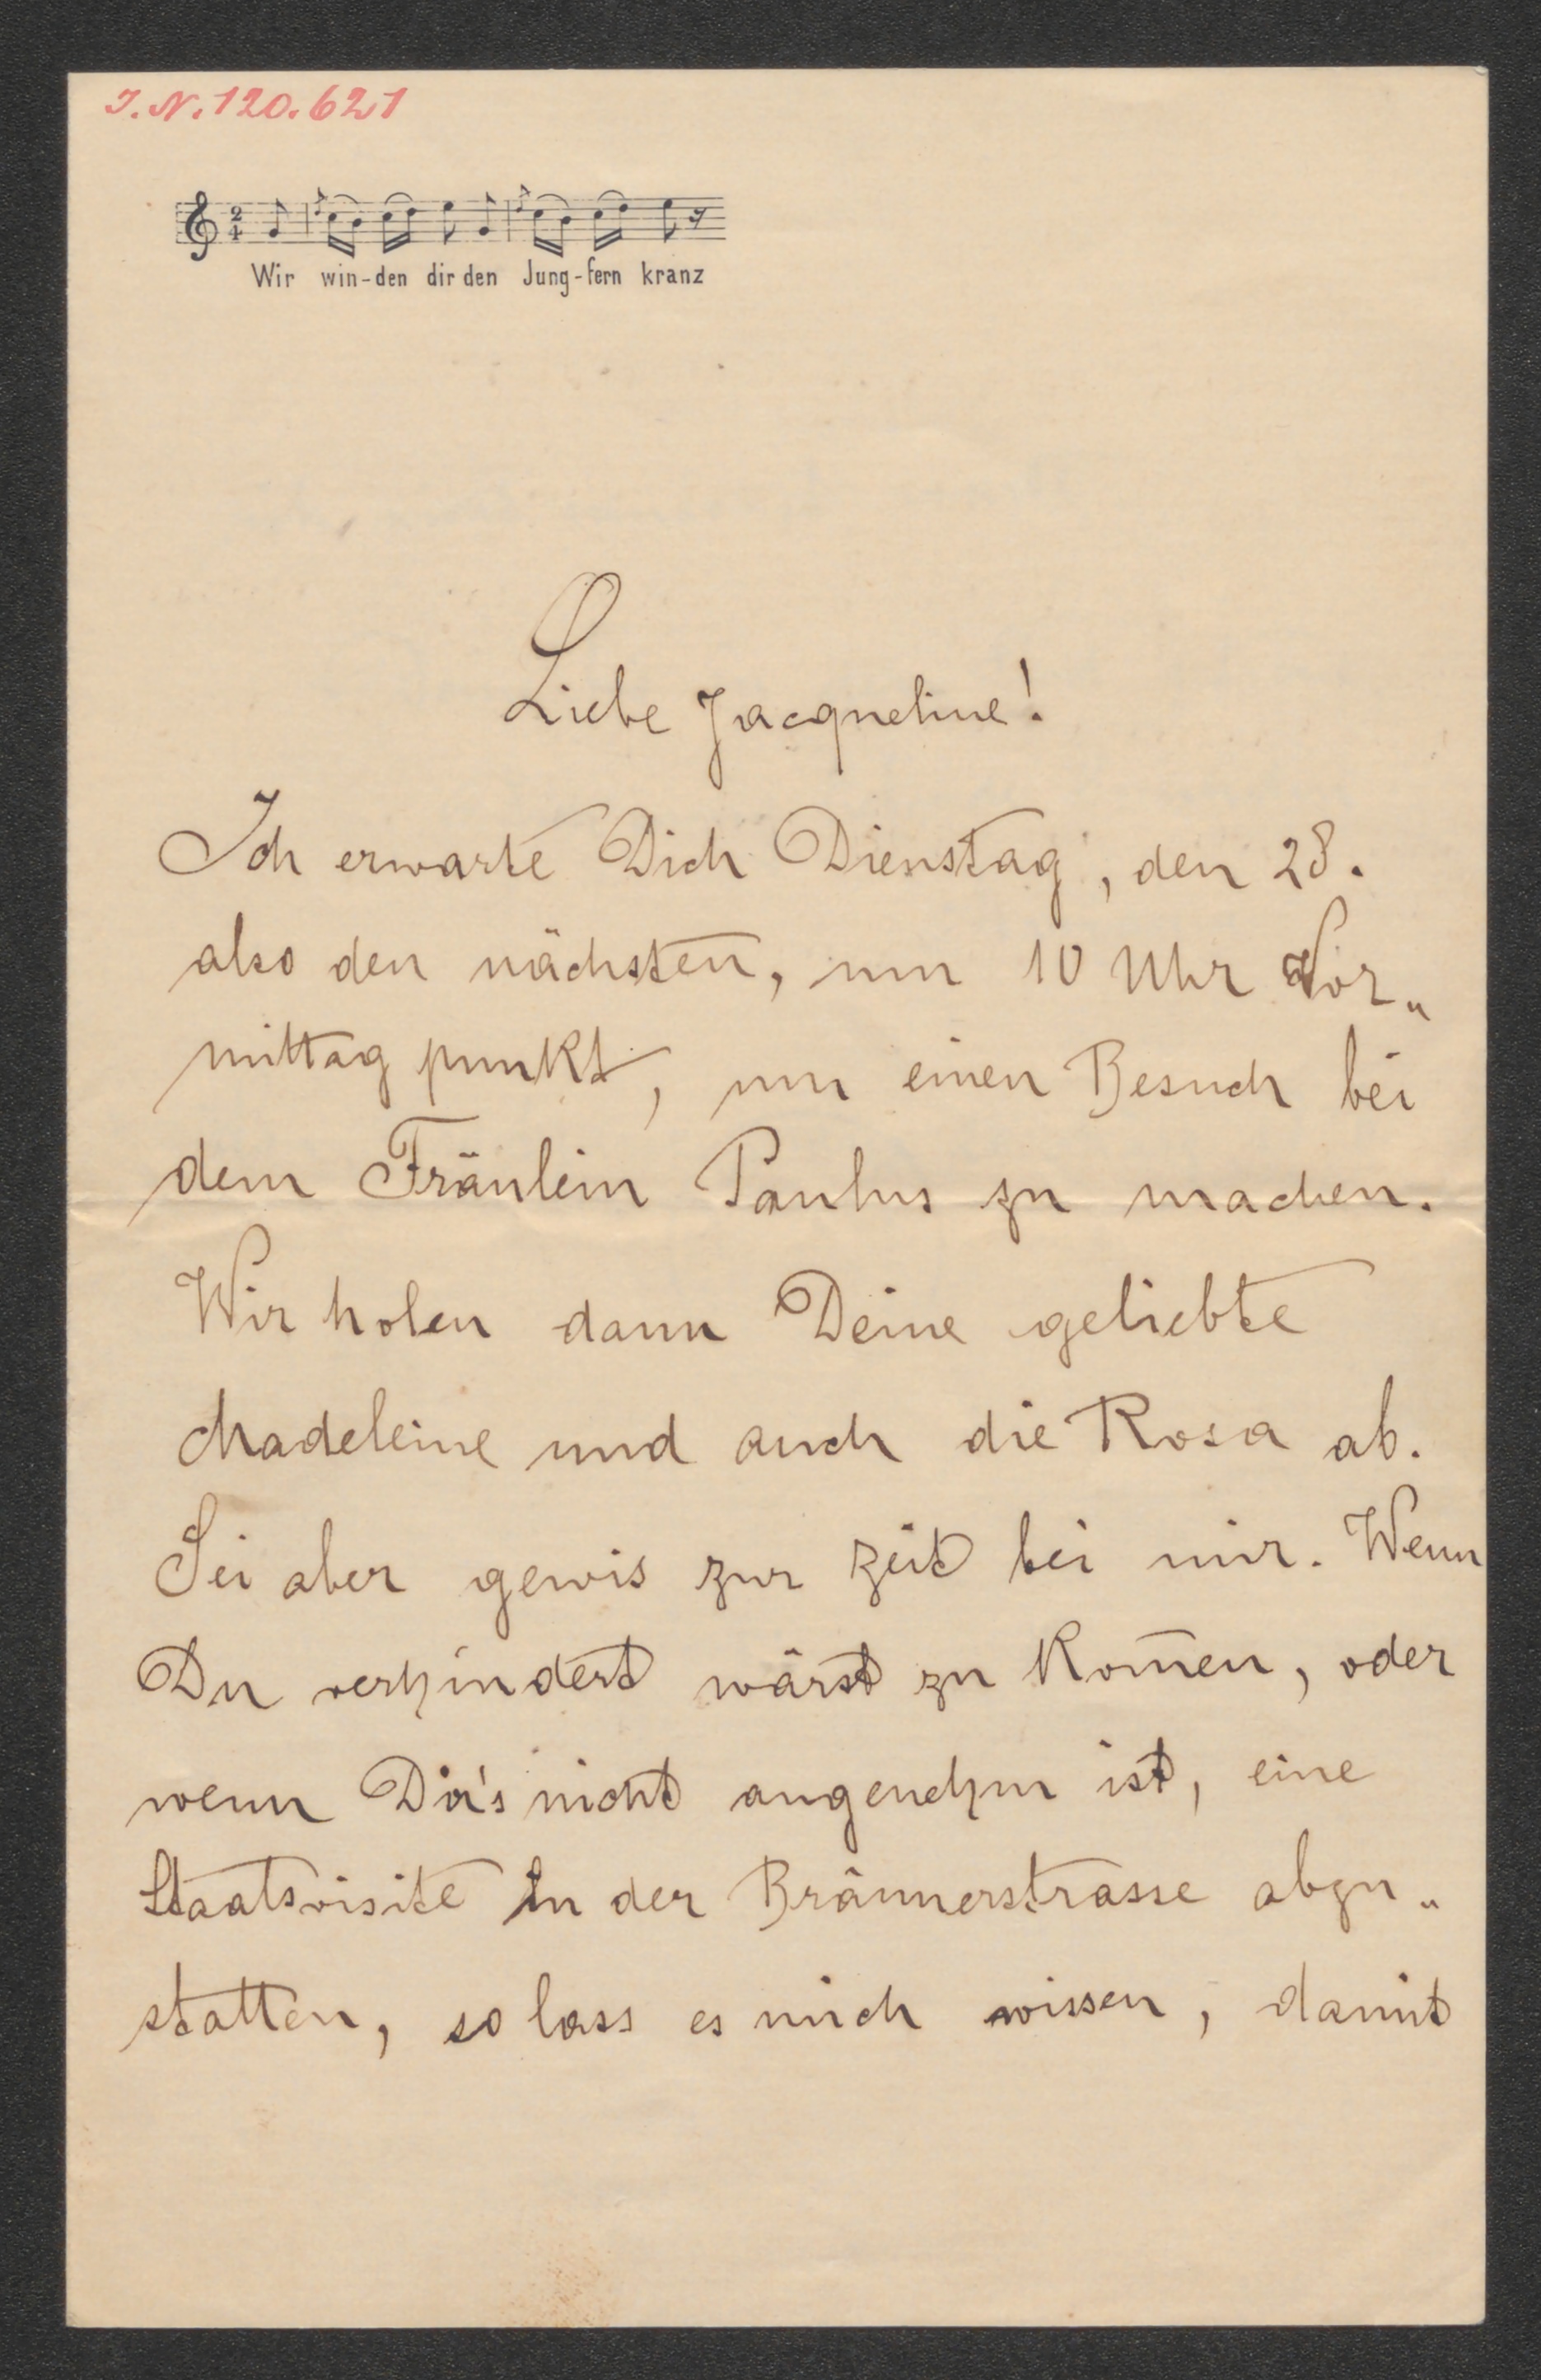 I.N.120.621
Wir win-den dir den Jung-fern kranz
Liebe Jacqueline!
Ich erwarte Dich Dienstag, den 28.
also den nächsten, um 10 Uhr Vor„
mittag punkt, um einen Besuch bei
dem Fräulein Paulus zu machen.
Wir holen dann Deine geliebte
Madeleine und auch die Rosa ab.
Sei aber gewis zur Zeit bei mir. Wenn
Du verhindert wärst zu kom̄en, oder
wenn Dir's nicht angenehm ist, eine
Staatsvisite in der Bräunerstrasse abzu„
statten, so lass es mich wissen, damit